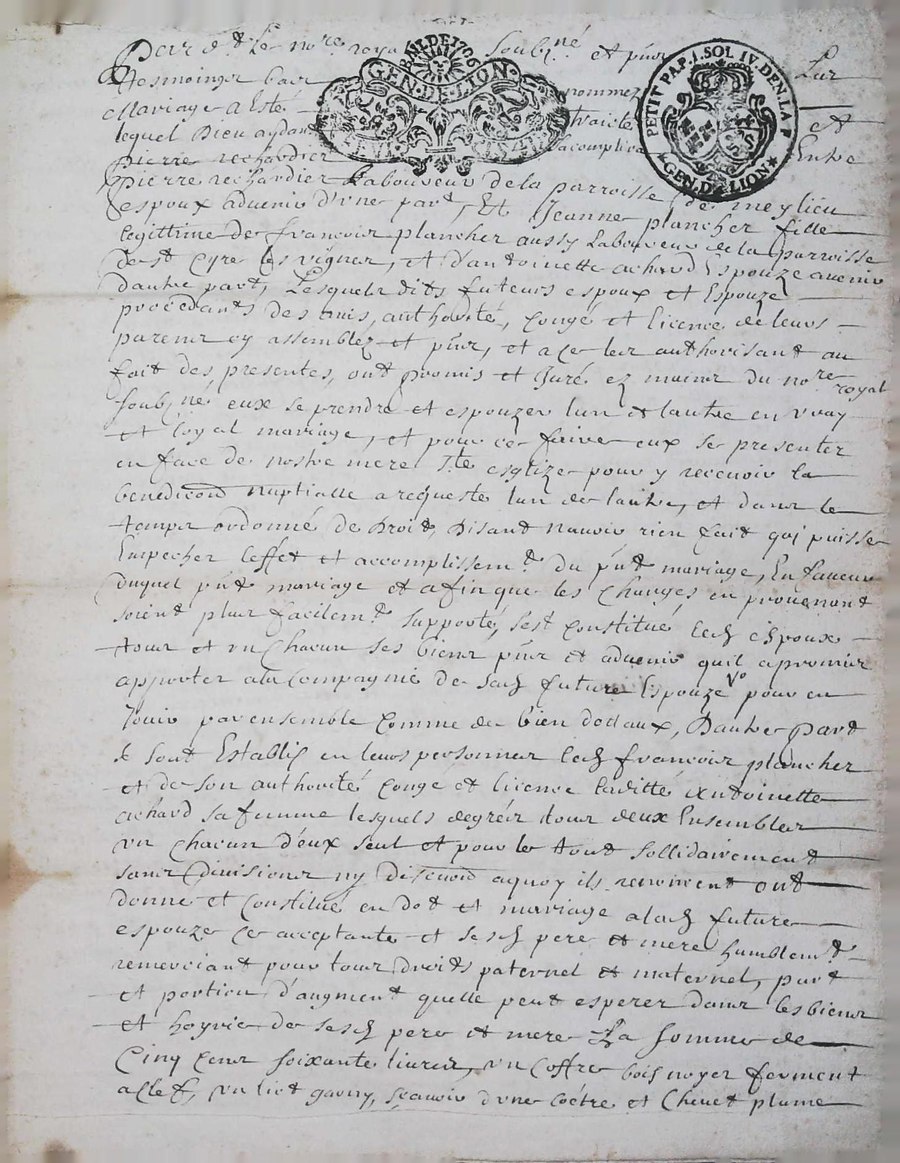 Pardt. Le nore. royal soubné. et pnts Les
tesmoings bas nommez
Mariage a Esté traicté et
lequel Dieu aydant accomply Entre
pierre rechardier
pierre rechardier Laboureur de la parroisse de meylieu
espoux advenir d'une part, Et Jeanne plancher fille
legittime de francois plancher aussy Laboureur de la parroisse
de st Cyre les vignes, et d'antoinette achard Espouze avenir
dautre part, Lesquels dits futeurs espoux et Espouze
procedants des avis, authorité, congé et licence de leurs
parents cy assemblez et pnts, et a ce les authorisant au
fait des presentes, ont promis et Juré ez mains du nore royal
soubné. eux se prendre et espouzer lun et lautre en vray
et loyal mariage, et pour ce faire eux se presenter
en face de nostre mere Ste esglize pour y recevoir la
benedicon nuptialle a requeste lun de lautre, et dans le
temps ordonné de Droit, Disant navoir rien fait qui puisse
Empecher Leffet et accomplissemt. du pnt mariage, En faveur
duquel pnt mariage et afin que les charges en provenant
soient plus facilemt. supporté, sest constitué led espoux
tous et un chacun ses biens pnts et advenir quil a promis
apporter a la Compagnie de sad future Espouze pour en
Jouir par ensemble comme de bien dotaux, Dautre part
se sont Establis en leurs personnes led francois plancher
et de son authorité congé et licence laditte Antoinette
achard sa femme lesquels degréz tous deux Ensembles
un chacun d'eux seul et pour le tout sollidairement
sans Divisions ny discuon aquoy ils renoncent ont
donne et Constitué en dot et mariage a lad future
espouze ce acceptante et sesd pere et mere humblemt.
remerciant pour tous droits paternel et maternel, part
et portion d'augment quelle peut esperer dans les biens
et hoyrie de sesd pere et mere La somme de
Cinq cens soixante livres, un Coffre bois noyer fermant
a Clef, un lict garny, sçavoir d'une coëtre et Chevet plume
BNL DE 1706
GEN. DE LION
PETIT PAP. 1. SOL IV. DEN. LA F
GEN. D LION